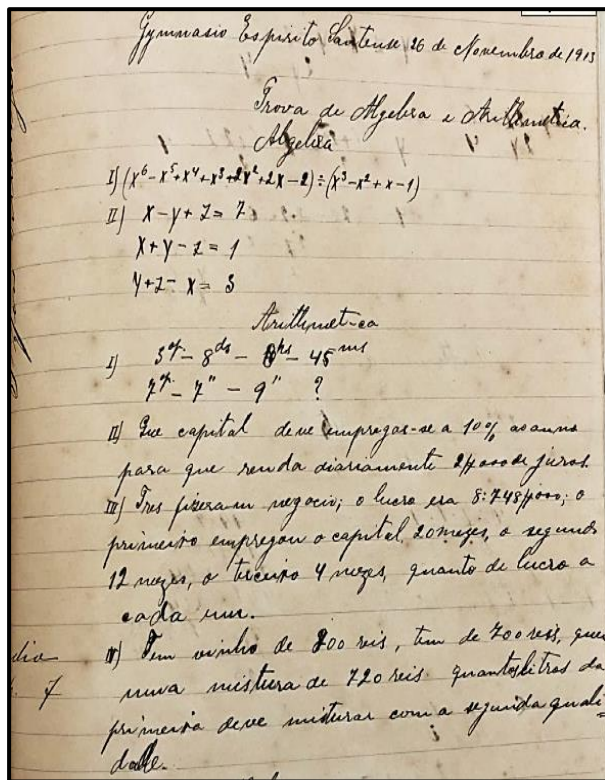 Gymnasio Espirito Santense 26 de Novembro de 1913
Prova de Algebra e Arithmetica.
Algebra
I) (x⁶-x⁵+x⁴+x³+2x²+2x-2)÷(x³-x²+x-1)
II) x-y+z=7
x+y-z=1
y+z-x=3
Arithmetica
I) 3 - 8ds - hs - 45ms
7 - 7" - 9" ?
II) Que capital deve empregar-se a 10% ao anno
para que renda diariamente 2$000 de juros.
III) Tres fizeram negocio; o lucro era 8:748$000; o
primeiro empregou o capital 20 mezes, o segundo
12 mezes, o terceiro 4 mezes, quanto de lucro a
cada um.
IV) Tem vinho de 800 reis, tem de 700 reis, quer
7 numa mistura de 720 reis quantos litros da
primeira deve misturar com a segunda quali
dade.